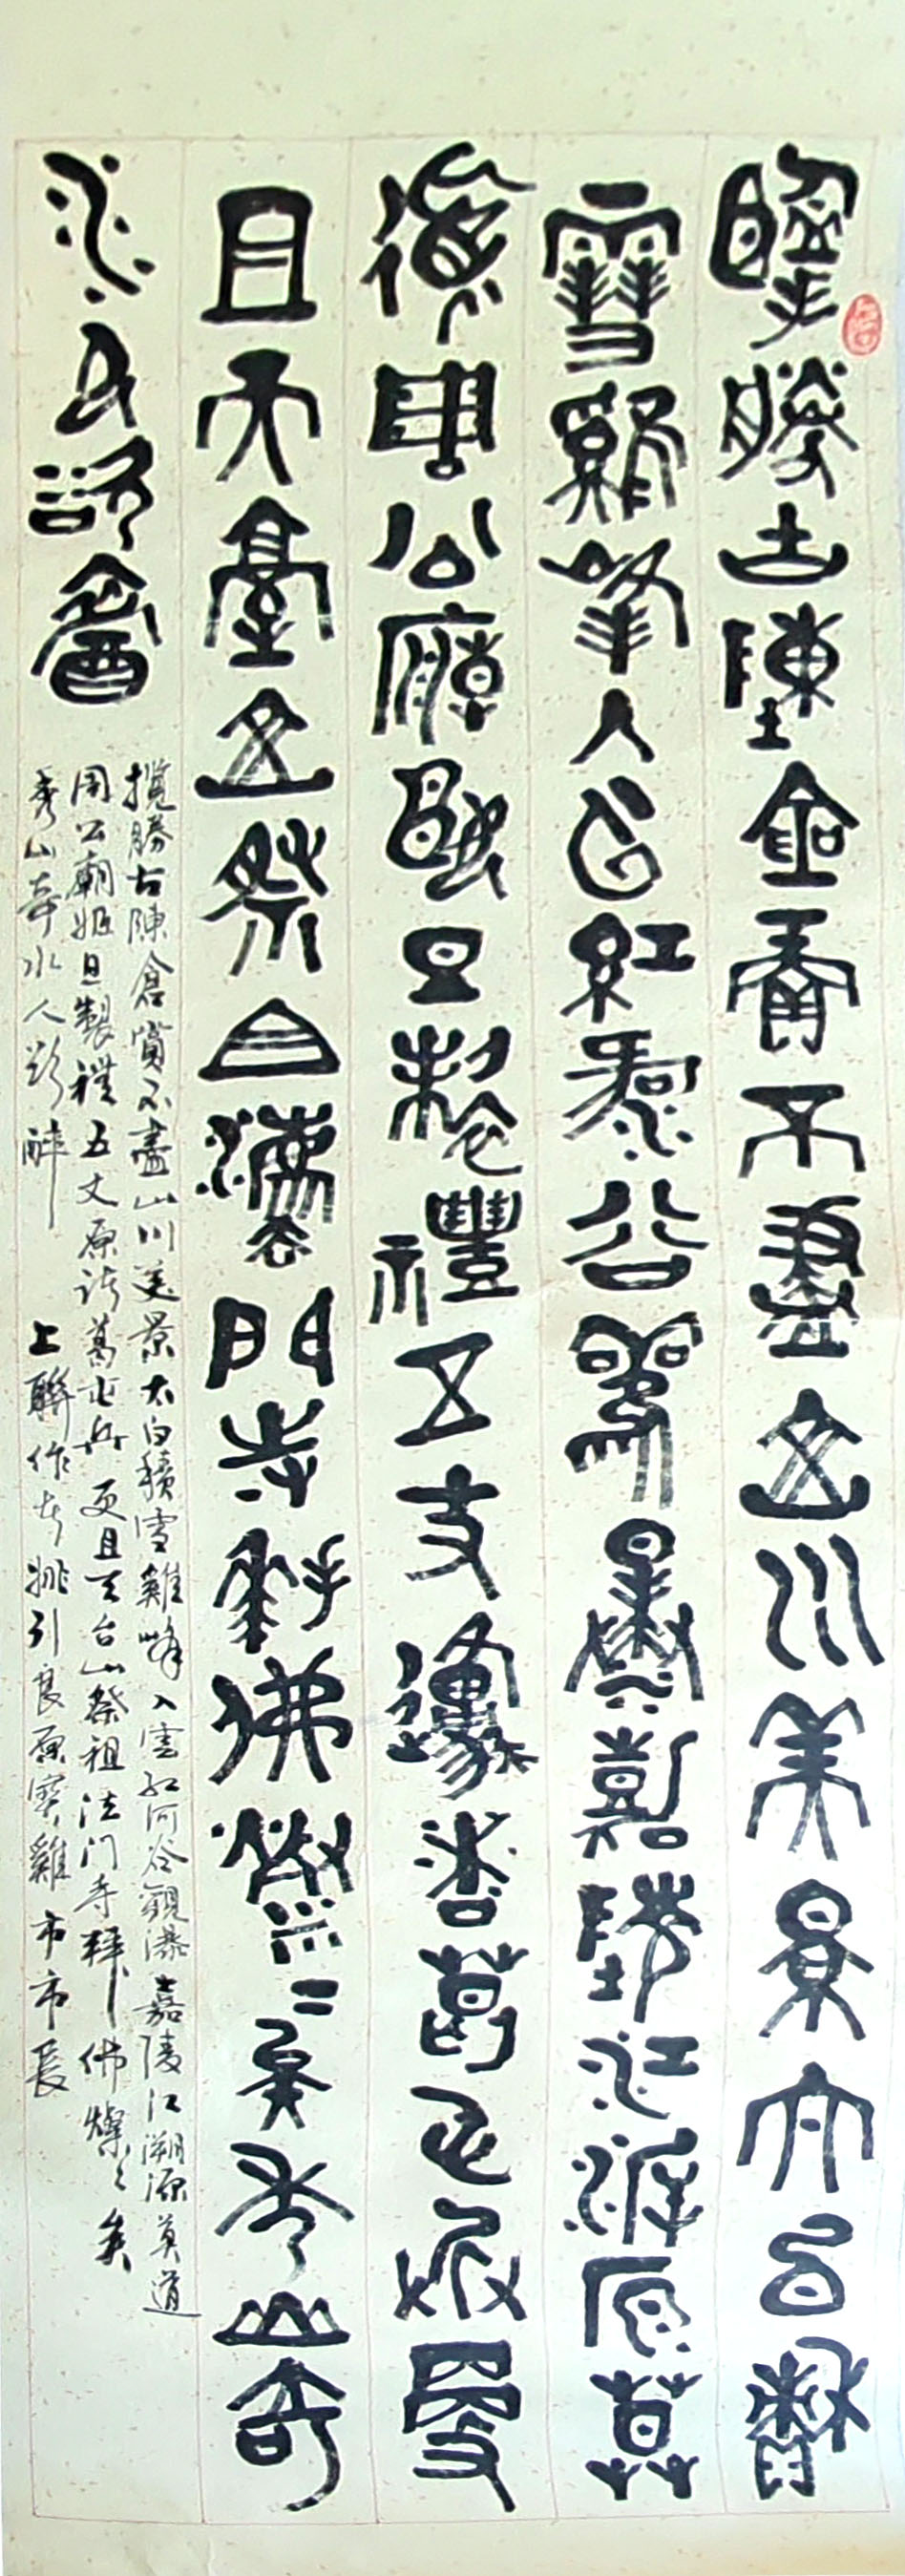 攬勝古陳倉賞不盡山川美景太白積
雪雞峰入雲紅河谷觀瀑嘉陵江溯源莫
道周公廟姬旦製禮五丈原諸葛屯兵更
且天臺山祭祖法門寺拜佛燦々矣秀山奇
水人欲醉
攬勝古陳倉賞不盡山川美景太白積雪雞峰入雲紅河谷觀瀑嘉陵江溯源莫道
周公廟姬旦製禮五丈原諸葛屯兵更且天台山祭祖法门寺拜佛燦々矣
秀山奇水人欲醉 上聯作者姚引良原寶雞市市長